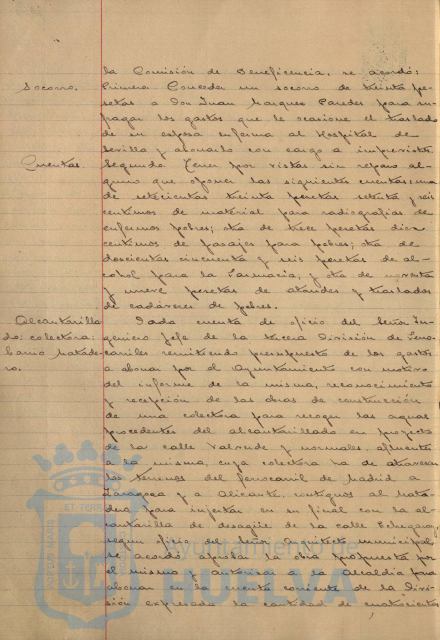 la Comisión de Beneficencia, se acordó:
Socorro. Primero. Conceder un socorro de treinta pe-
setas a Don Juan Marquez Paredes para su-
fragar los gastos que le ocasione el traslado
de su esposa enferma al Hospital de
Sevilla y abonarlo con cargo a imprevistos.
Cuentas. Segundo. Tener por vistas sin reparo al-
guno que oponer las siguientes cuentas: una
de setecientas treinta pesetas setenta y seis
centimos de material para radiografias de
enfermos pobres; otra de trece pesetas diez
centimos de pasajes para pobres; otra de
doscientas cincuenta y seis pesetas de al-
cohol para la Farmacia; y otra de
y nueve pesetas de ataudes y traslados
de cadáveres de pobres.
Alcantarilla- Dada cuenta de oficio del Señor In-
do; colectora; geniero Jefe de la tercera División de Ferro-
barrio matade- carriles remitiendo presupuesto de los gastos
ro. a abonar por el Ayuntamiento con motivo
del informe de la misma, reconocimiento
y recepción de las obras de construcción
de una colectora para recoger las aguas
procedentes del alcantarillado en proyecto
de la calle Valverde y normales, afluentes
a la misma, cuya colectora ha de atravesar
los terrenos del ferrocarril de Madrid a
Zaragoza y a Alicante, contiguos al mata-
dero, para injertar en su final con la al-
cantarilla de desagüe de la calle Echegaray,
segun oficio del Señor Arquitecto municipal,
se acordó aprobar la obra propuesta por
el mismo y autorizar a la Alcaldía para
abonar en la cuenta corriente de la Divi-
sión expresada la cantidad de cuatrocientas
ET TERRÆ
PORTUS MARIS
CUSTODIA
Ayuntamiento de
HUELVA